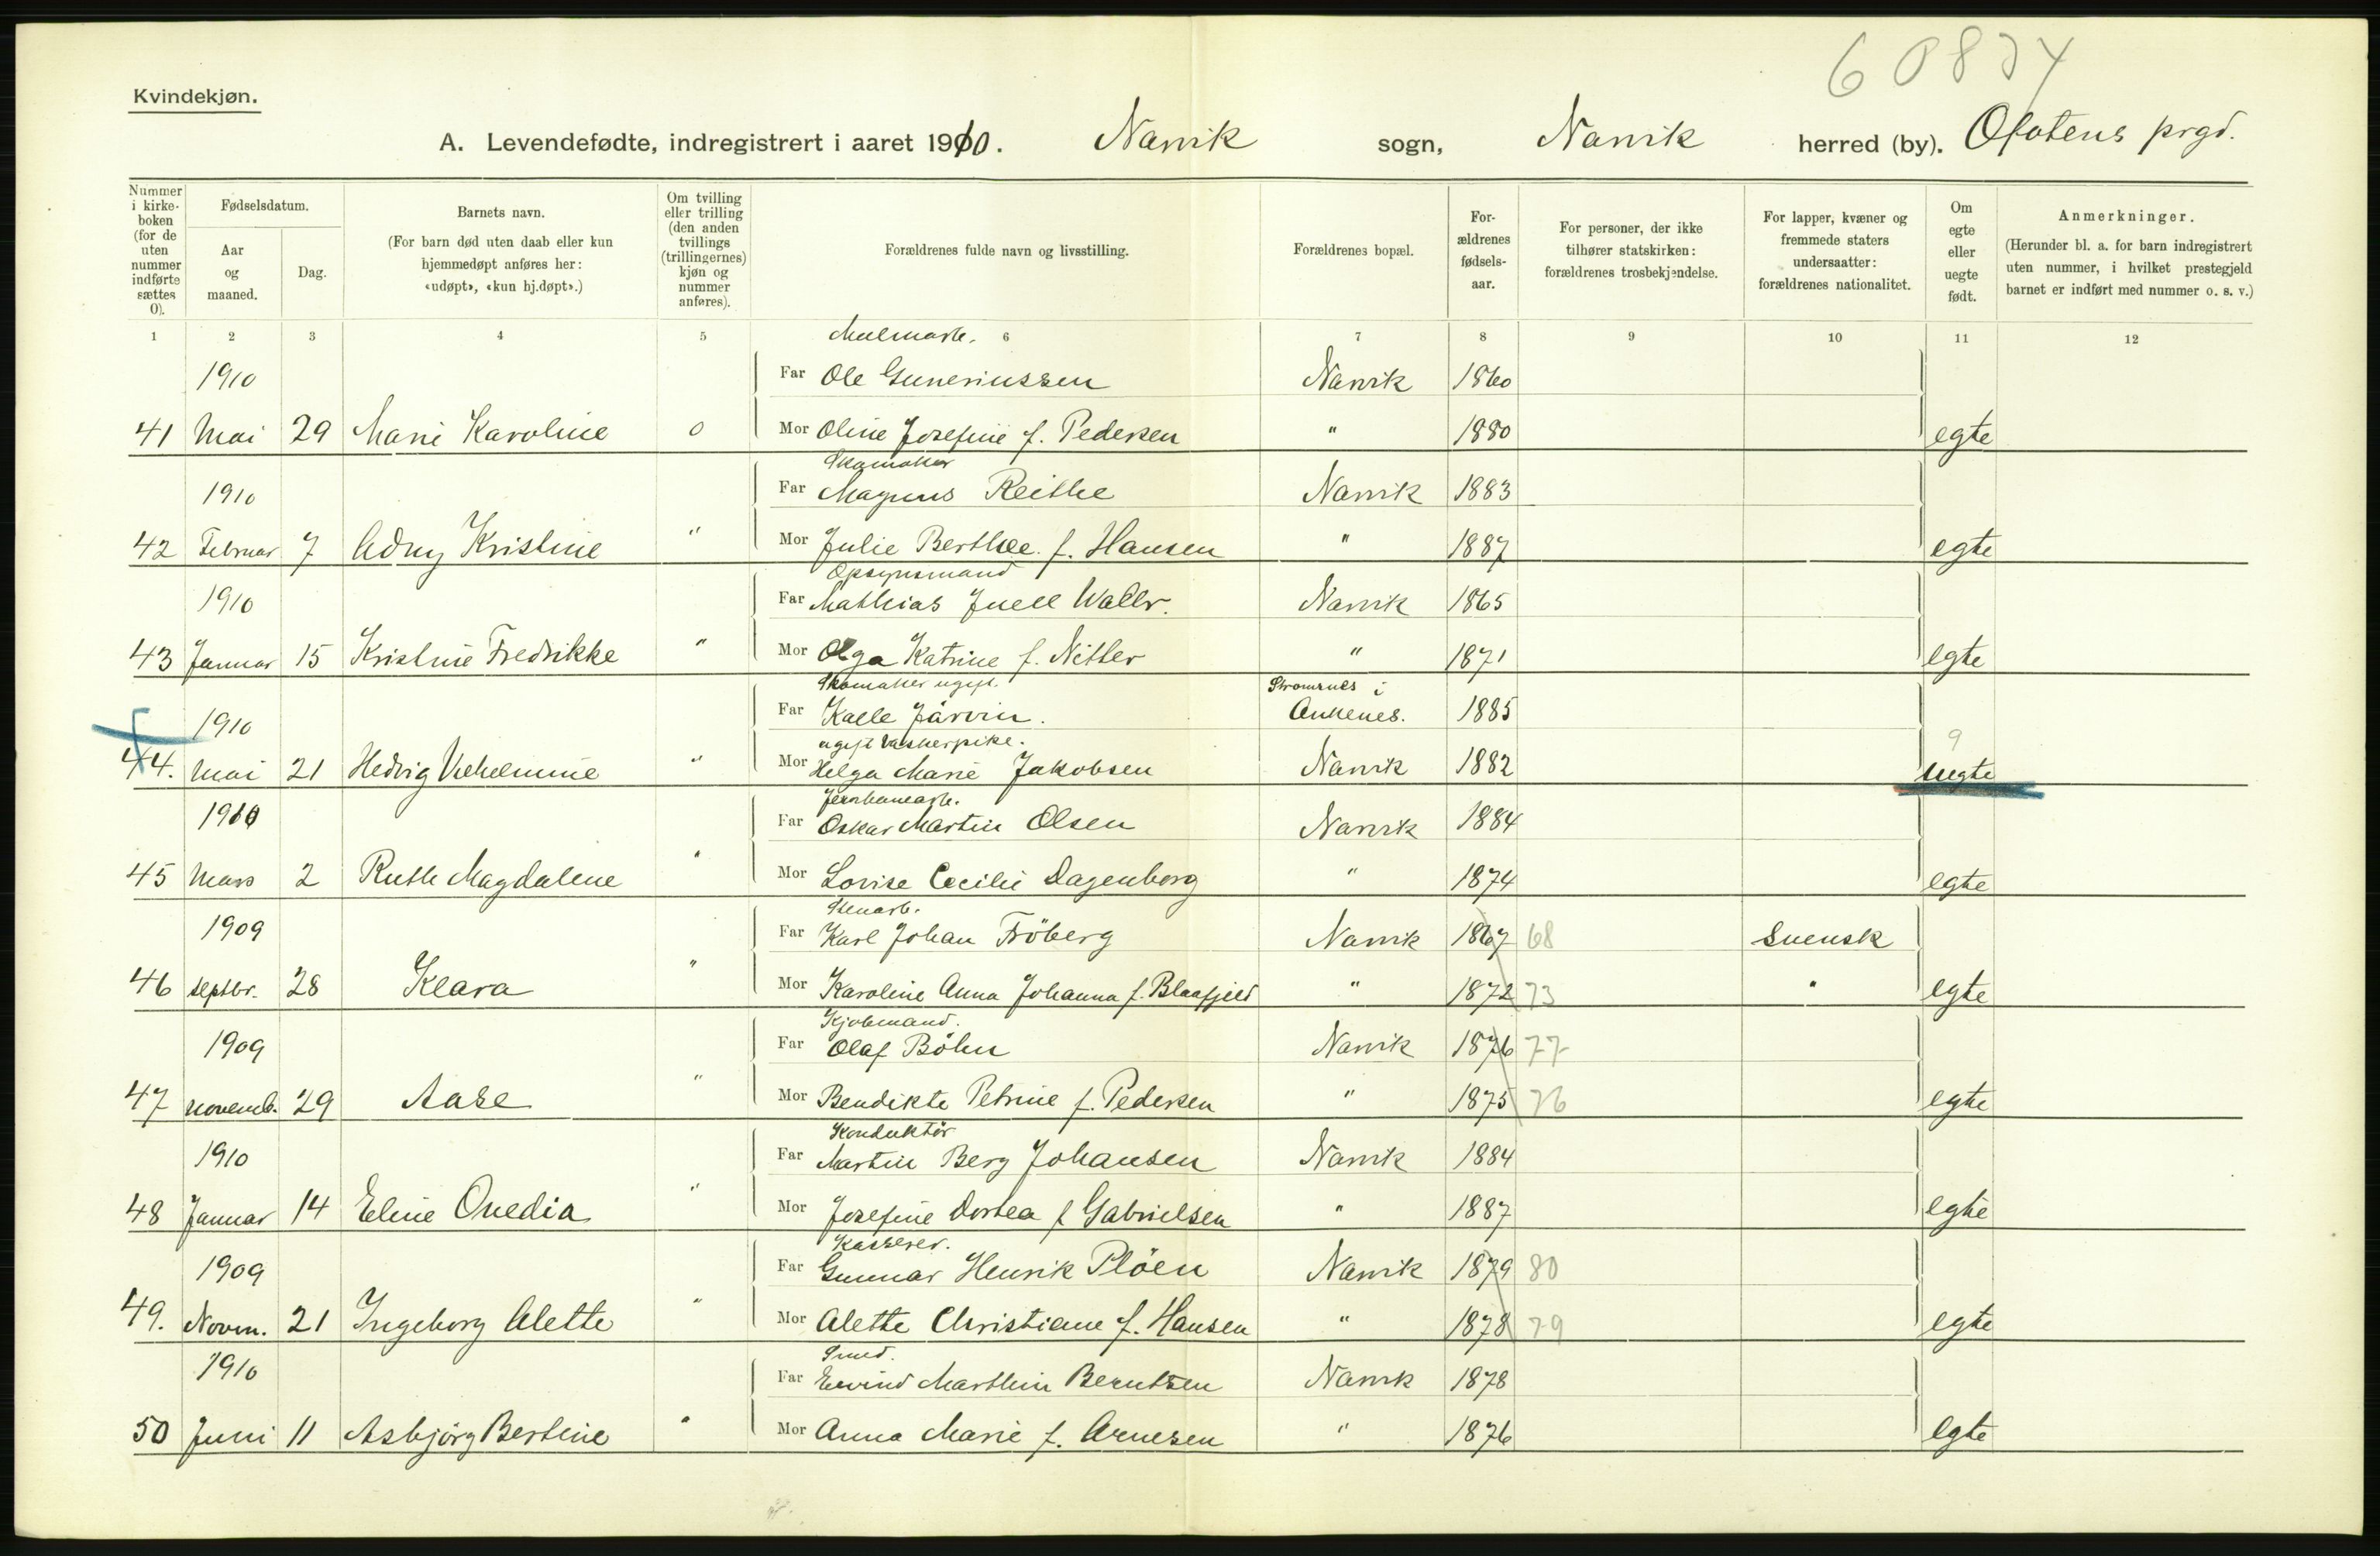 Kvindekjøn.
A. Levendefødte, indregistrert i aaret 1910. Narvik sogn, Narvik herred (by). Ofotens prgd.
Nummer i kirkeboken (for de uten nummer indførte sættes 0).
Fødselsdatum.
Aar og maaned.
Dag.
Barnets navn.
(For barn død uten daab eller kun hjemmedøpt anføres her: «udøpt», «kun hj.døpt».)
Om tvilling eller trilling (den anden tvillings (trillingernes) kjøn og nummer anføres).
Forældrenes fulde navn og livsstilling.
Forældrenes bopæl.
Forældrenes fødselsaar.
For personer, der ikke tilhører statskirken: forældrenes trosbekjendelse.
For lapper, kvæner og fremmede staters undersaatter: forældrenes nationalitet.
Om egte eller uegte født.
Anmerkninger.
(Herunder bl. a. for barn indregistrert uten nummer, i hvilket prestegjeld barnet er indført med nummer o. s. v.)
1 2 3 4 5 6 7 8 9 10 11 12
Malmarb.
1910 Far Ole Guneriussen Narvik 1860
41 Mai 29 Marie Karoline 0 Mor Oline Josefine f. Pedersen " 1880 egte
Skomaker
1910 Far Magnus Reithe Narvik 1883
42 Februar 7 Adny Kristine " Mor Julie Berthee f. Hansen " 1887 egte
Opsynsmand
1910 Far Mathias Juell Wallr. Narvik 1865
43 Januar 15 Kristine Fredrikke " Mor Olga Katrine f. Nitter " 1871 egte
Skomaker ugift. Strømsnes i
1910 Far Kalle Järvin. Ankenes. 1885
ugift vaskerpike. 9
44. Mai 21 Hedvig Vilhelmine " Mor Helga Marie Jakobsen Narvik 1882 uegte
Jernbanearb.
1910 Far Oskar Martin Olsen Narvik 1884
45 Mars 2 Ruth Magdalene " Mor Lovise Cecilie Dagenborg " 1874 egte
Stenarb.
1909 Far Karl Johan Fröberg Narvik 1867 68 Svensk
46 septbr. 28 Klara " Mor Karoline Anna Johanna f. Blaafjeld " 1872 73 " egte
Kjøbmand.
1909 Far Olaf Böhn Narvik 1876 77
47 novemb. 29 Aase " Mor Bendikte Petrine f. Pedersen " 1875 76 egte
Konduktør
1910 Far Martin Berg Johansen Narvik 1884
48 Januar 14 Eline Ovedia " Mor Josefine Dortea f Gabrielsen " 1887 egte
Kasserer.
1909 Far Gunnar Henrik Plöen Narvik 1879 80
49. Novm. 21 Ingeborg Alette " Mor Alette Christiane f. Hansen " 1878 79 egte
Smed.
1910 Far Eivind Marthin Berntsen Narvik 1878
50 Juni 11 Asbjørg Bertine " Mor Anna Marie f. Arnesen " 1876 egte